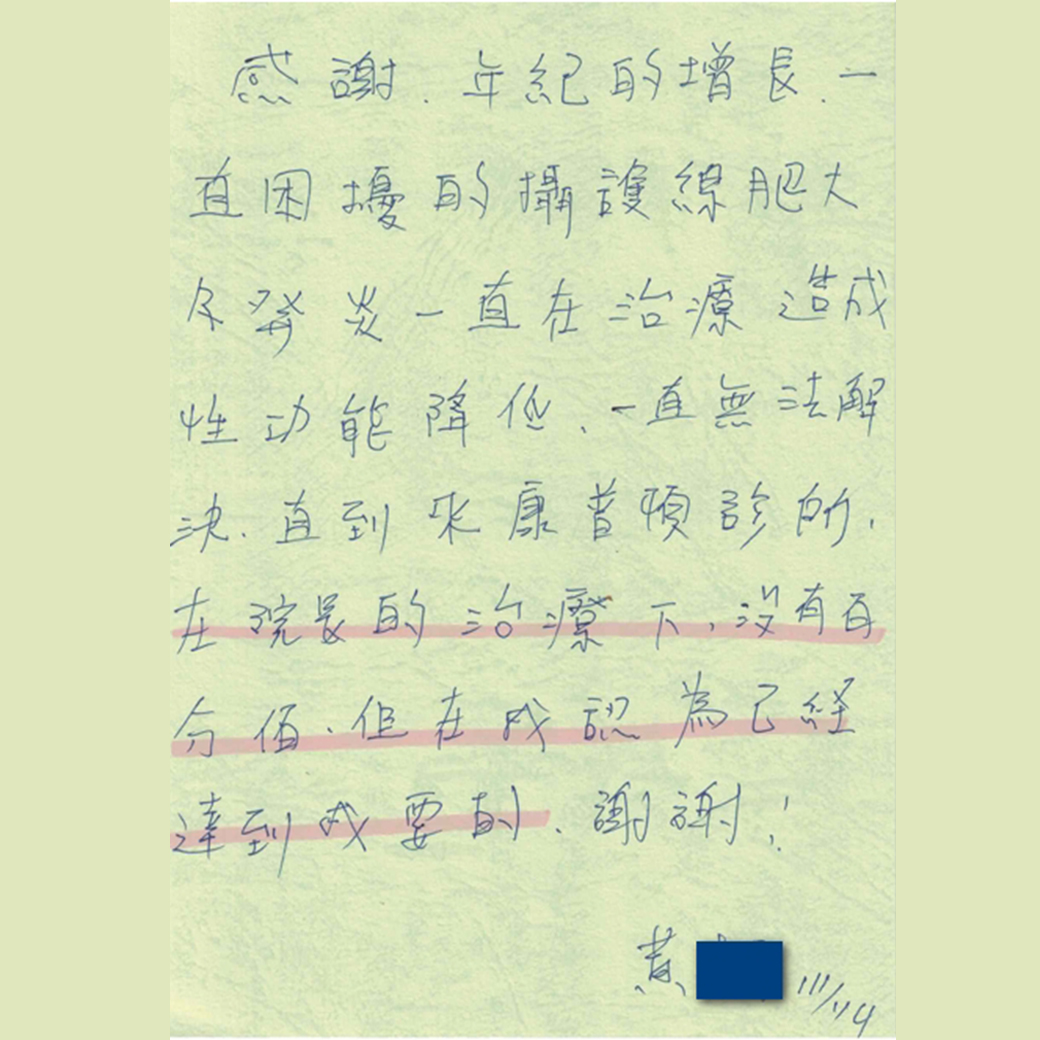 感謝.年紀的增長.一
直困擾的攝護線肥大
及發炎一直在治療造成
性功能降低.一直無法解
決.直到來康普頓診所,
在院長的治療下,沒有百
分佰.但在我認為已經
達到我要的.謝謝!
黃